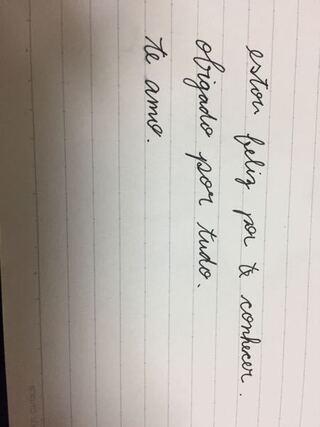 estou feliz por te conhecer.
obrigado por tudo.
te amo.